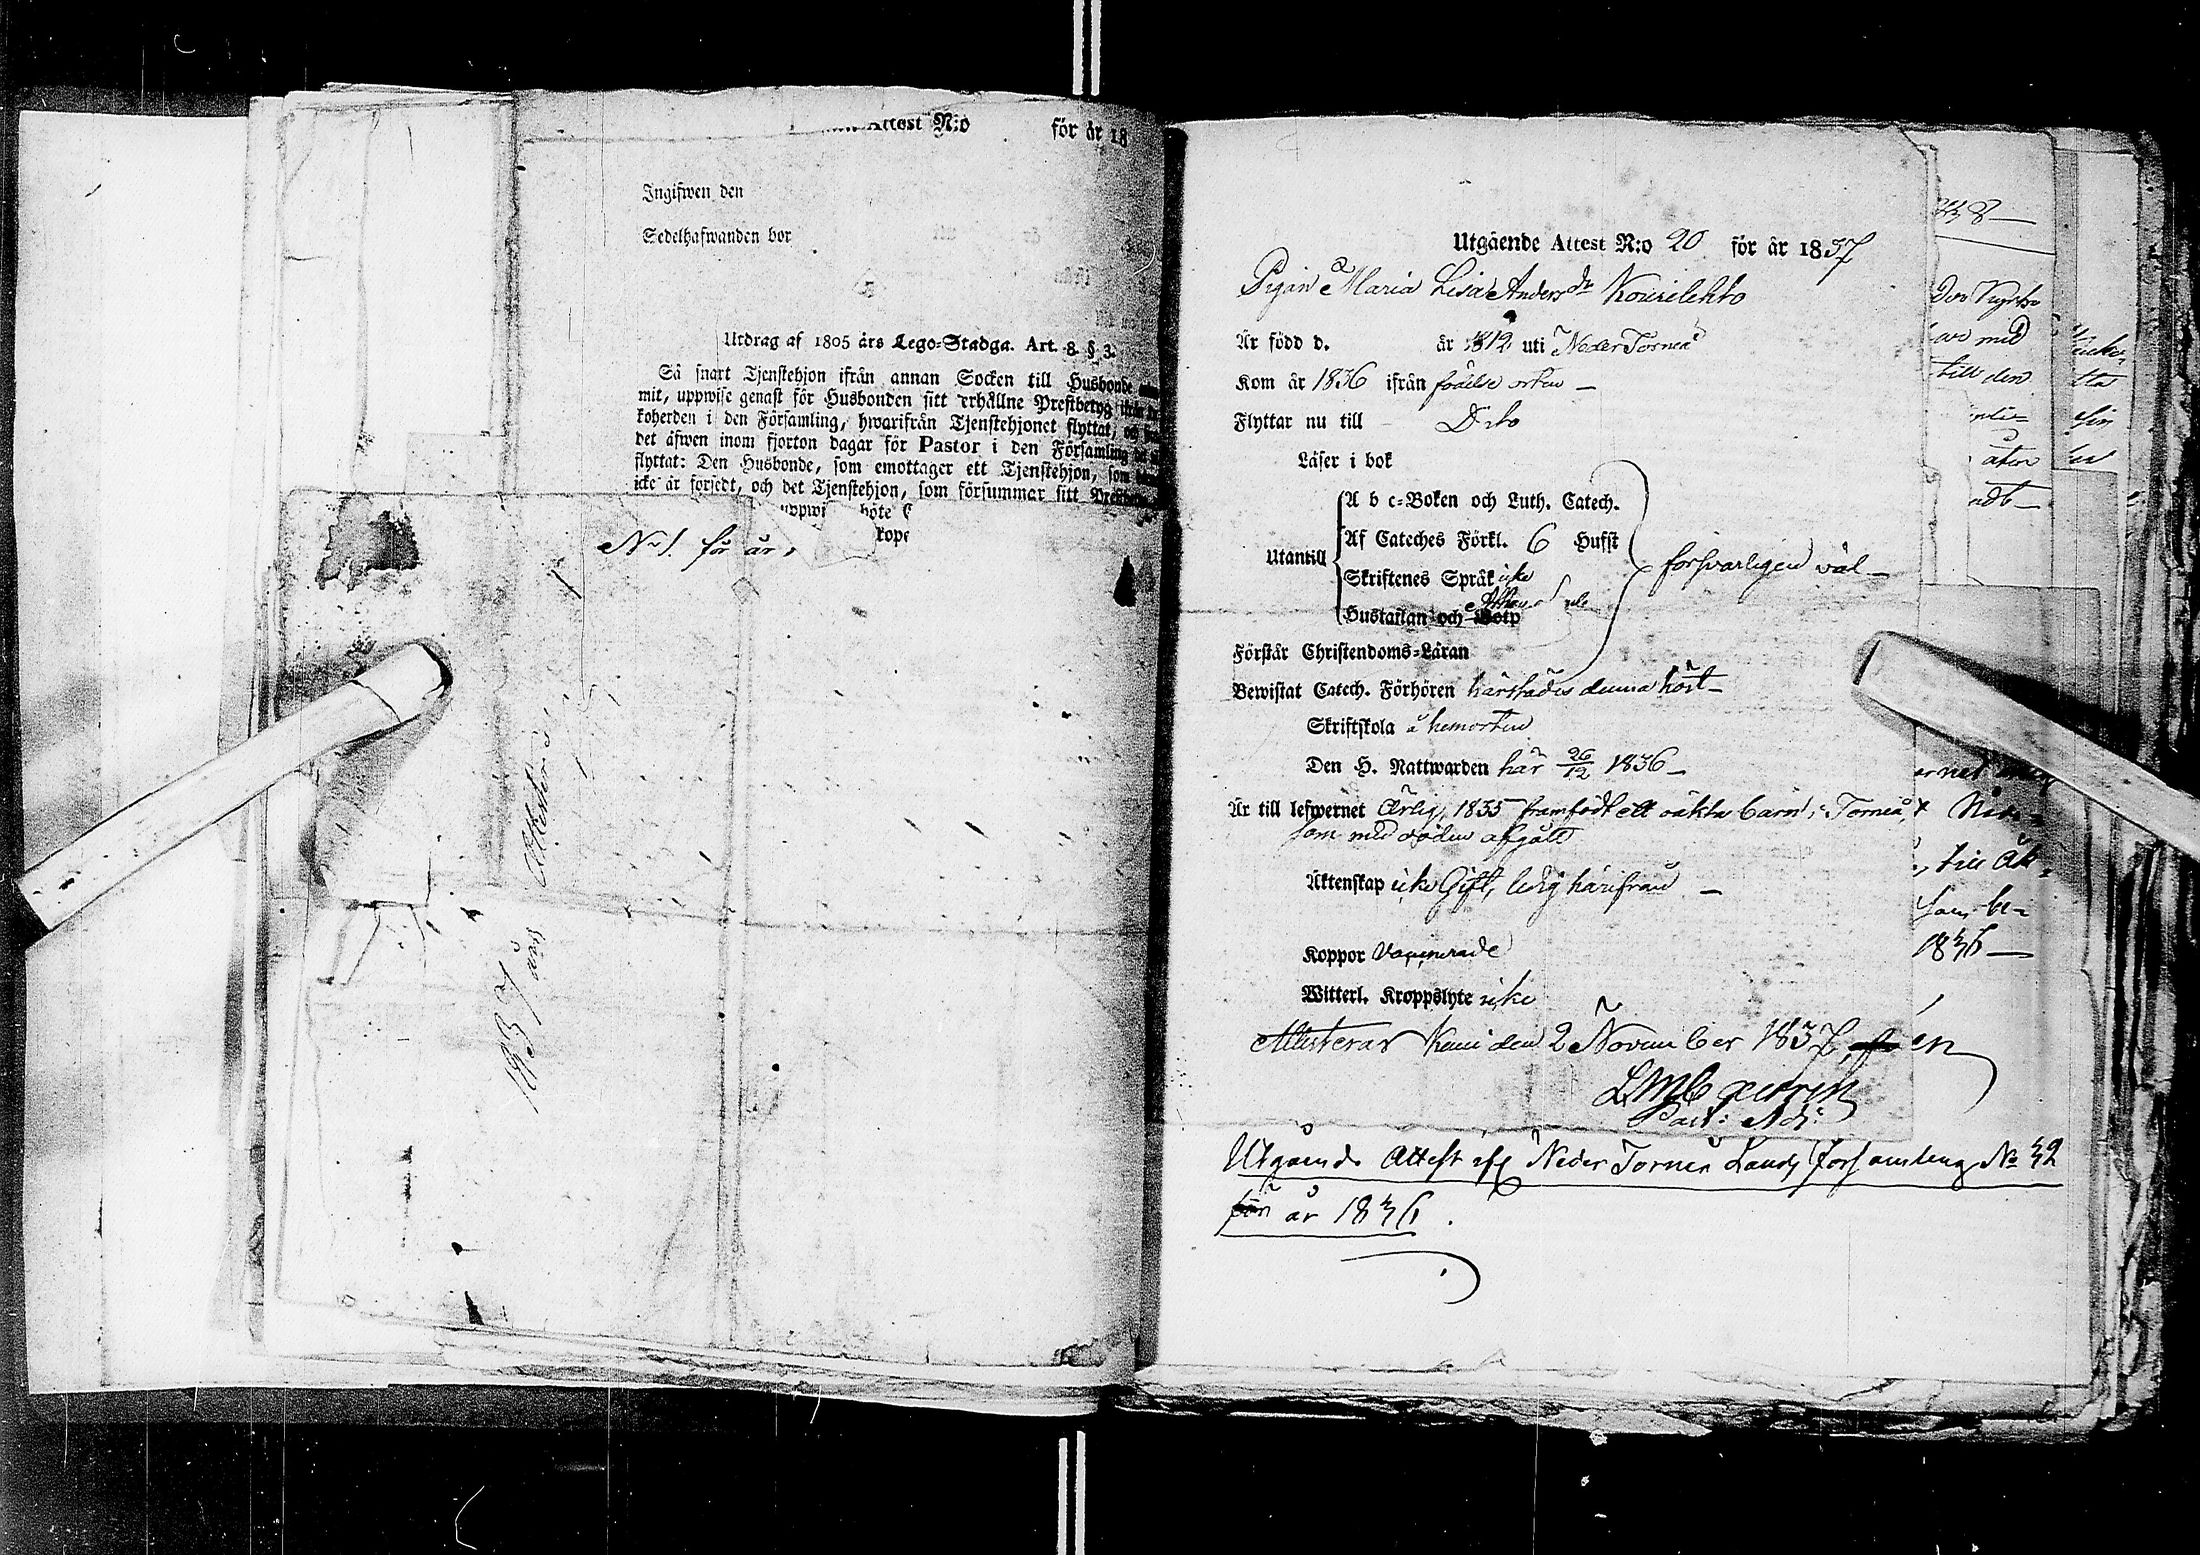 Attest N:o för år 18
Ingifwen den
Sedelhafwanden bor
Utdrag af 1805 års Lego-Stadga. Art. 8 § 3.
Så snart Tjenstehjon ifrån annan Socken till Husbonde
mit, uppwise genast för Husbonden sitt erhållne Prestbetyg
koherden i den Församling, hwarifrån Tjenstehjonet flyttat, og
det äfwen inom fjorton dagar för Pastor i den Församling
flyttat: Den Husbonde, som emottager ett Tjenstehjon, som
icke är försedt, och det Tjenstehjon, som försummar sitt
uppwi böte
kope
N:1. för år,
Attester
1837 års
Utgående Attest N:o 20 för år 1837
Pigan Maria Lisa Andersdr Kourilehto
Är född d. år 1812 uti Neder Torneå
Kom år 1836 ifrån födelse orten –
Flyttar nu till Dito
Läser i bok
Utantill
A b c-Boken och Luth. Catech.
Af Cateches Förkl. 6 Hufst
Skriftenes Språk icke
Hustaflan och Botp
försvarligen väl –
Förstår Christendoms-Läran
Bewistat Catech. Förhören härstädes denna höst –
Skriftskola å hemorten
Den H. Nattwarden här 26/12 1836 –
Är till lefwernet Ärlig, 1835 framfödt ett oäkta barn i Torneå
som med döden afgått
Äktenskap icke Gift, ledig härifrån –
Koppor Vaccinerade
Witterl. Kroppslyte icke
Attesteras Kemi den 2 November 1837
Past: Adj:
Utgående Attest ifr Neder Torneå Lands församling No 32
för år 1836.
med
till den
till Äk-
som be-
1836 –